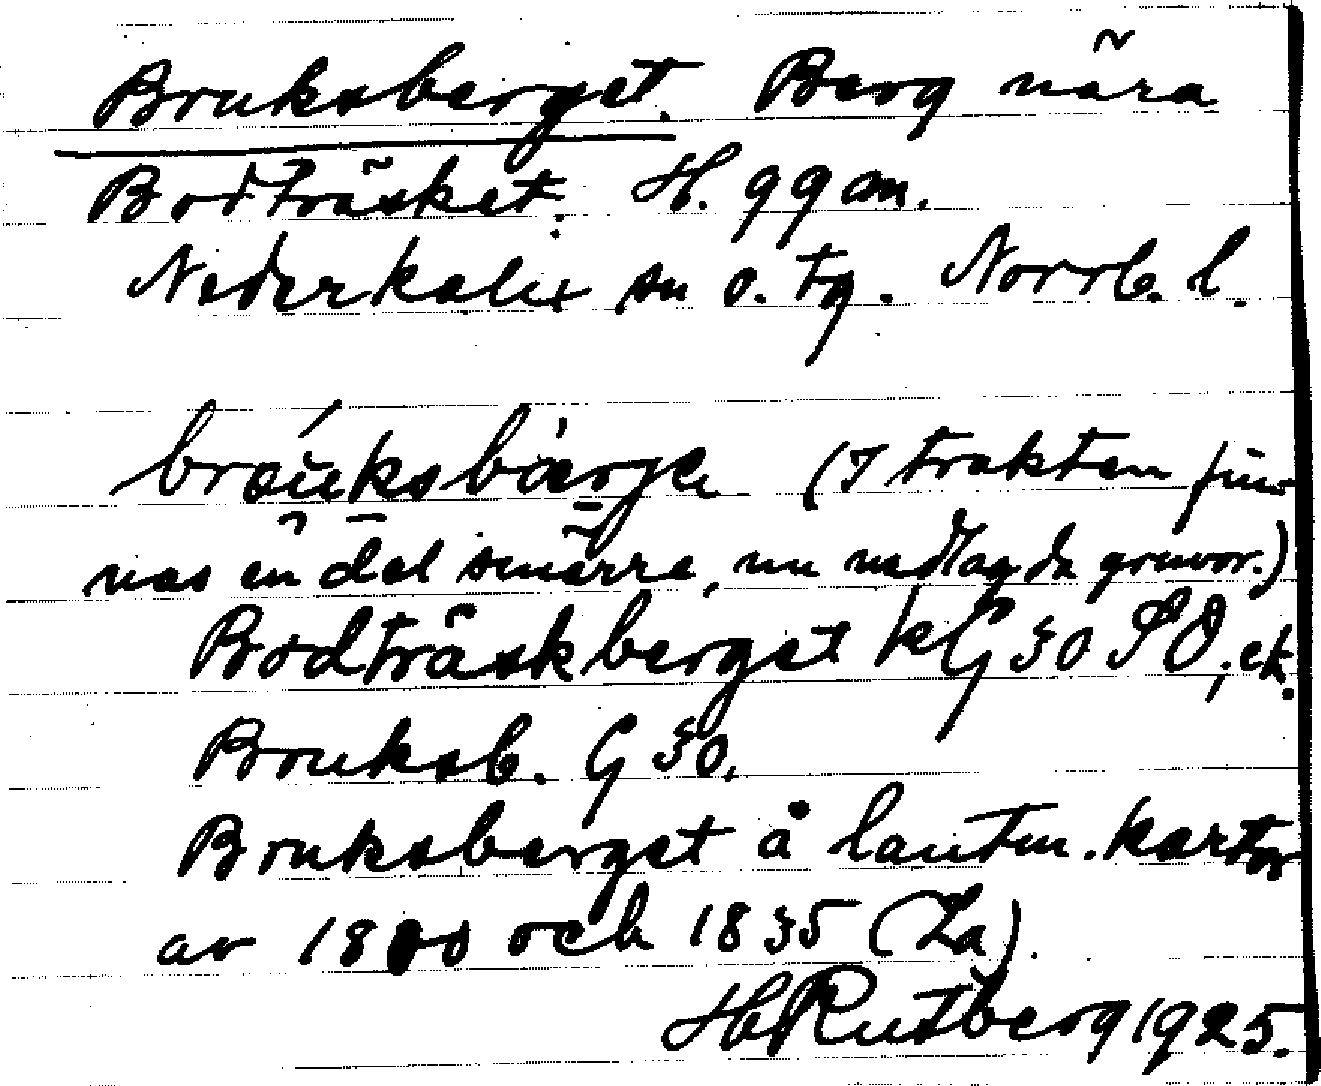 Bruksberget. Berg nära
Bodträsket. H. 99 m.
Nederkalix sn o. tg. Norrb. l.
bráuksbàrje (I trakten fin-
nas en del smärre, nu nedlagda gruvor.)
Bodträskberget kG 30 SO, ek.
Bruksb. G 30.
Bruksberget å lantm. kartor
av 18 och 1835 (La).
HRutberg 1925.